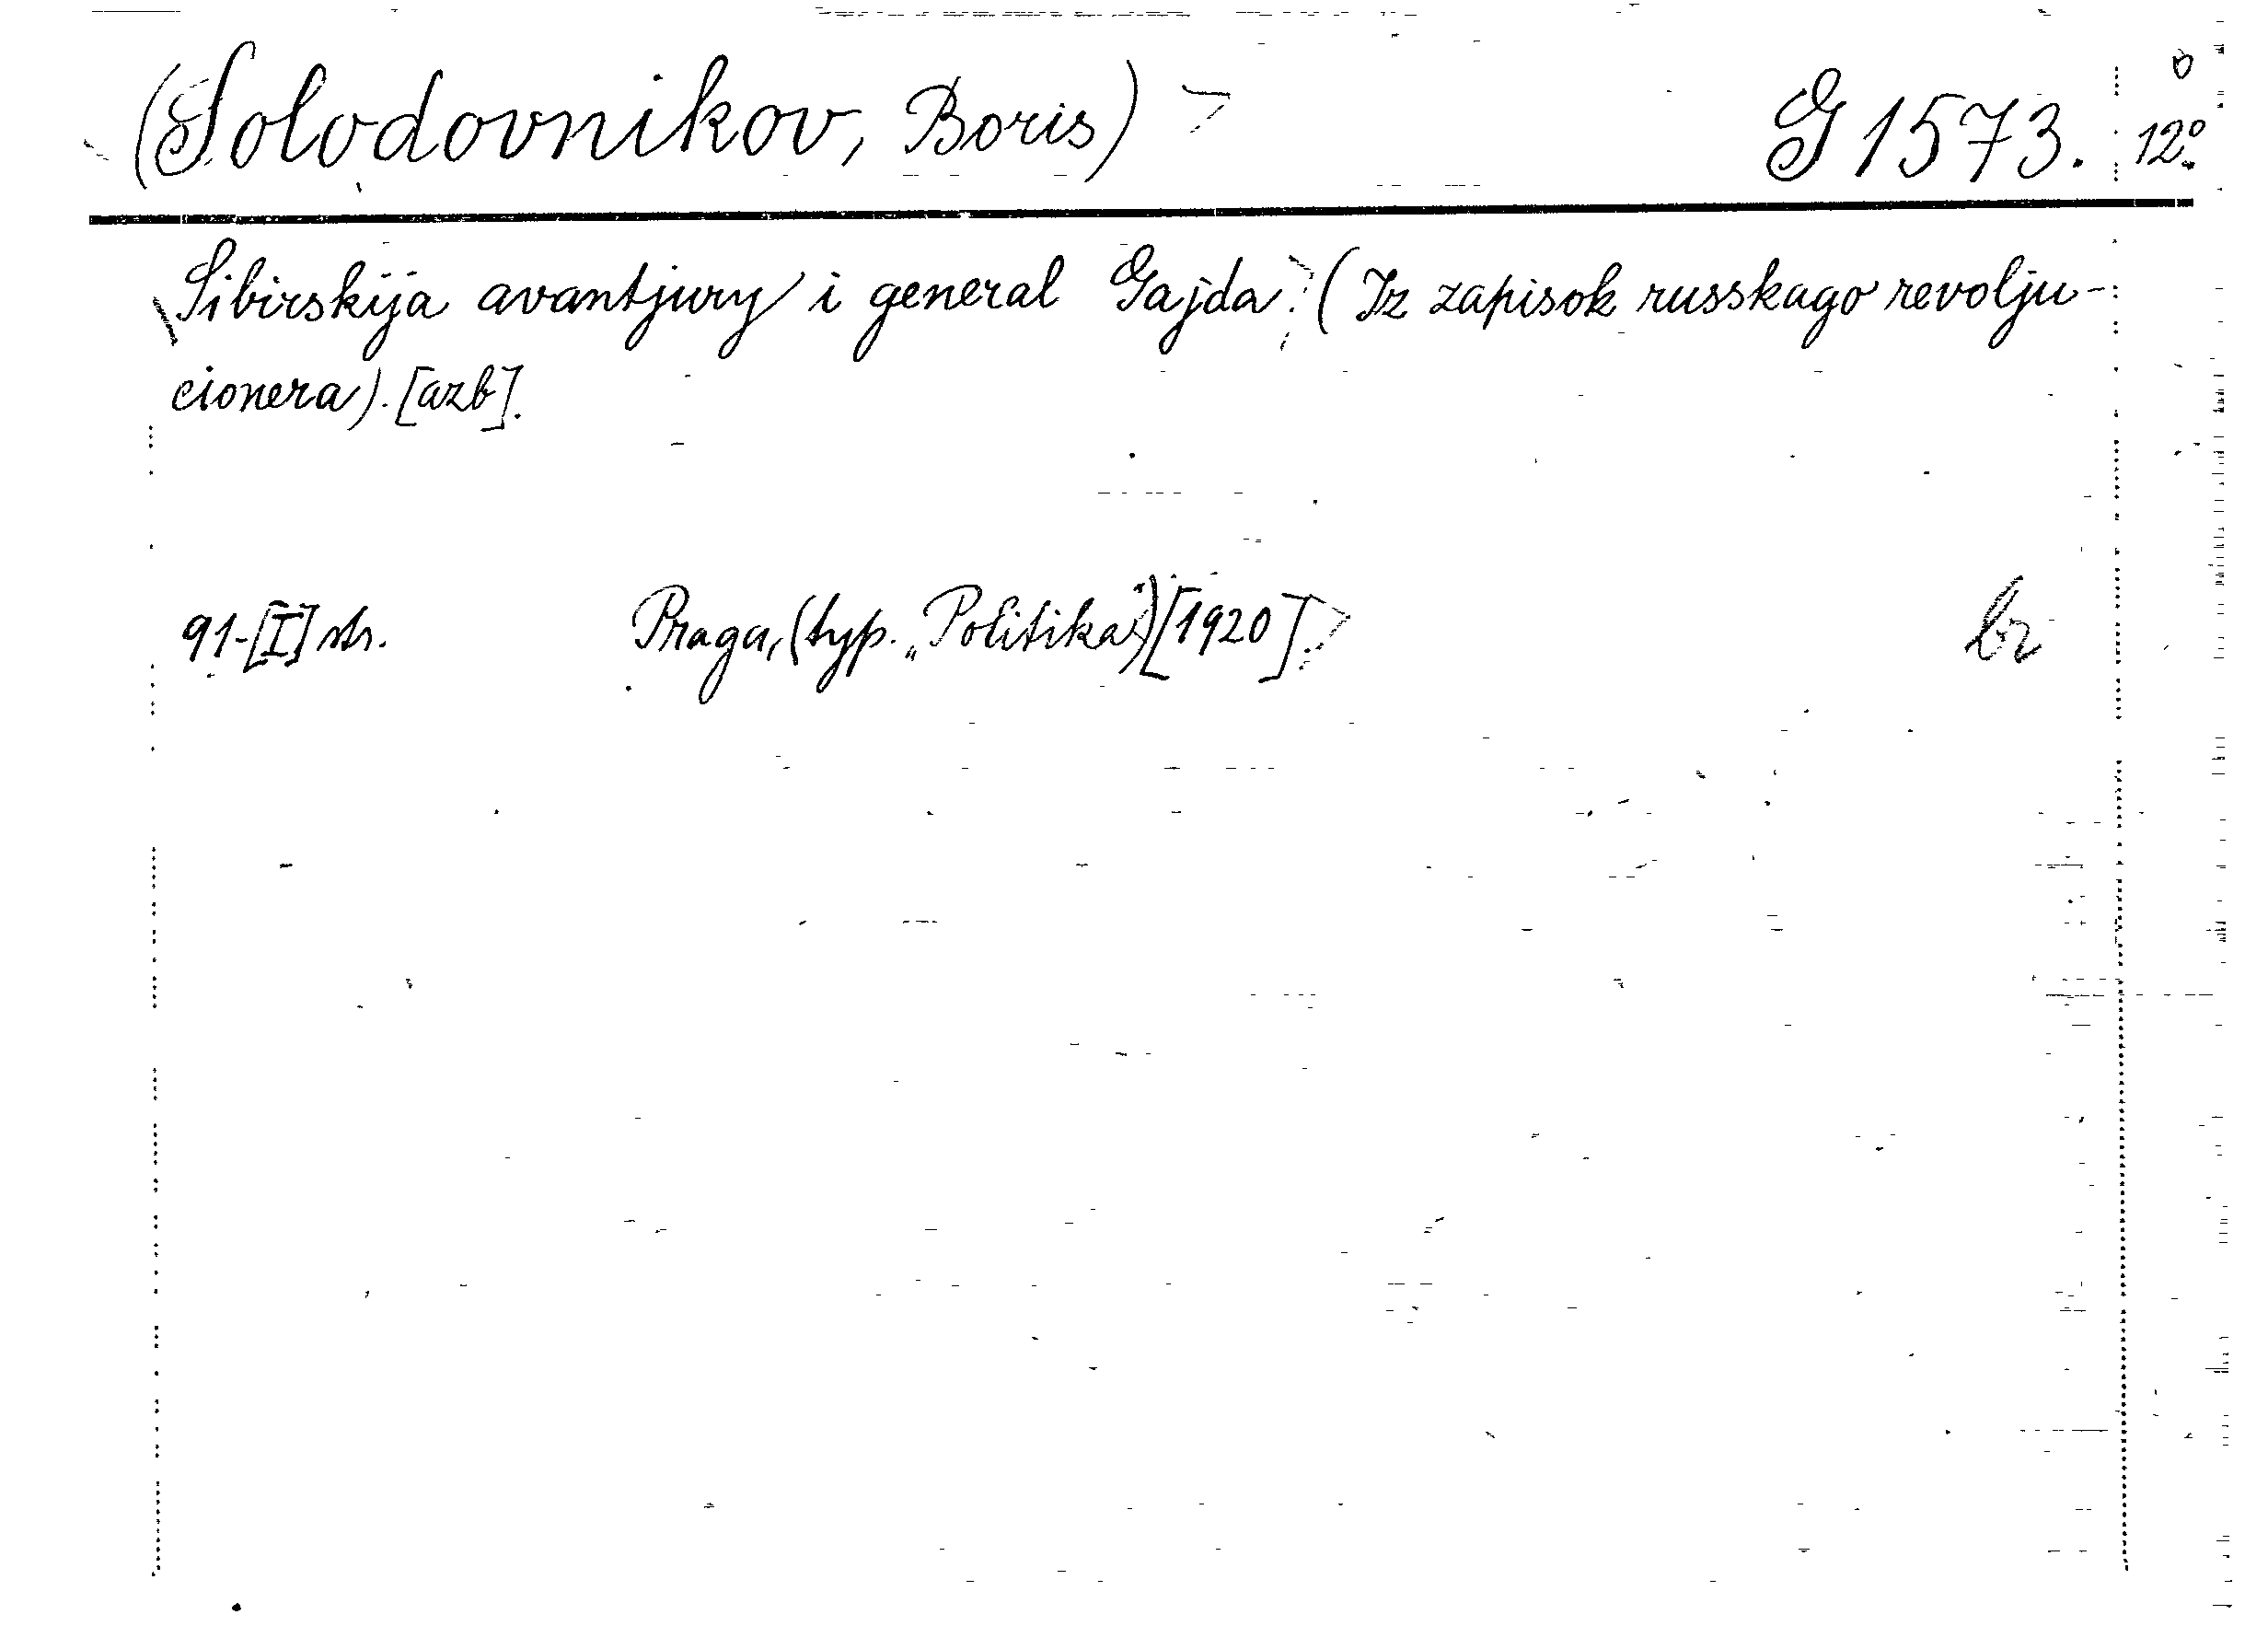 (Solodovnikov, Boris) G 1573. 12°
Sibirskija avantjury i general Gajda. (Iz zapisok russkago revolju-
cionera). [azb].
91-[I] str. Praga, (typ. „Politika") [1920]. br